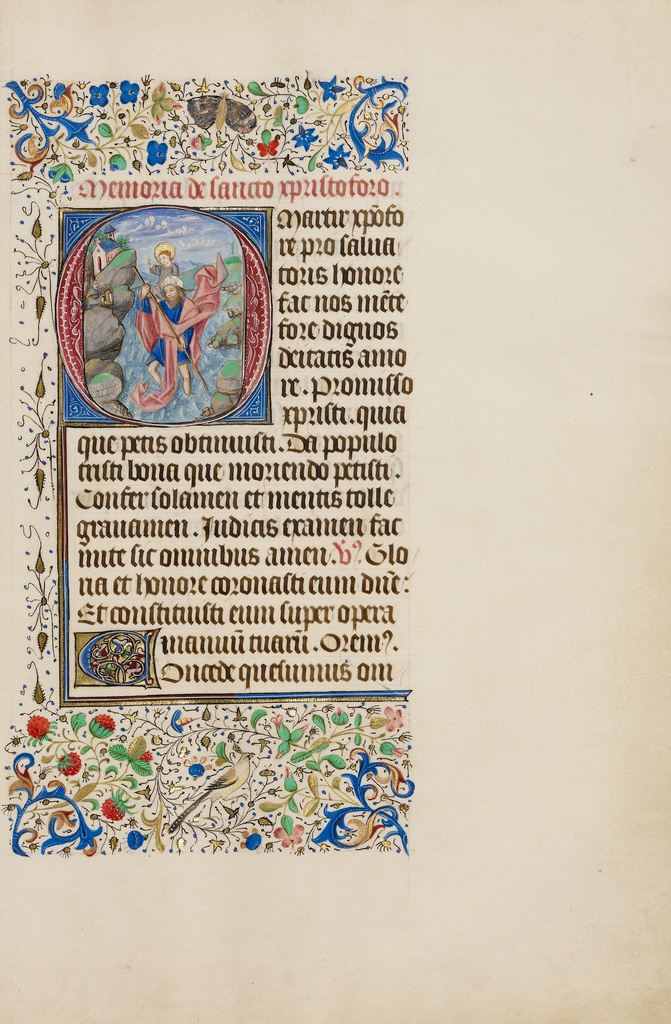 Memoria de sancto xpristoforo.
O Martir xpõfo
re pro salua
toris honore
fac nos mẽte
fore dignos
deitatis amo
re. Promisso
xpristi. quia
que petis obtinuisti. Da populo
tristi bona que moriendo petisti.
Confer solamen et mentis tolle
grauamen. Iudicis examen fac
mite sit omnibus amen. V̷. Glo
ria et honore coronasti eum dñe:
Et constituisti eum super opera
manuũ tuarũ. Orem⁹.
Concede quesumus om